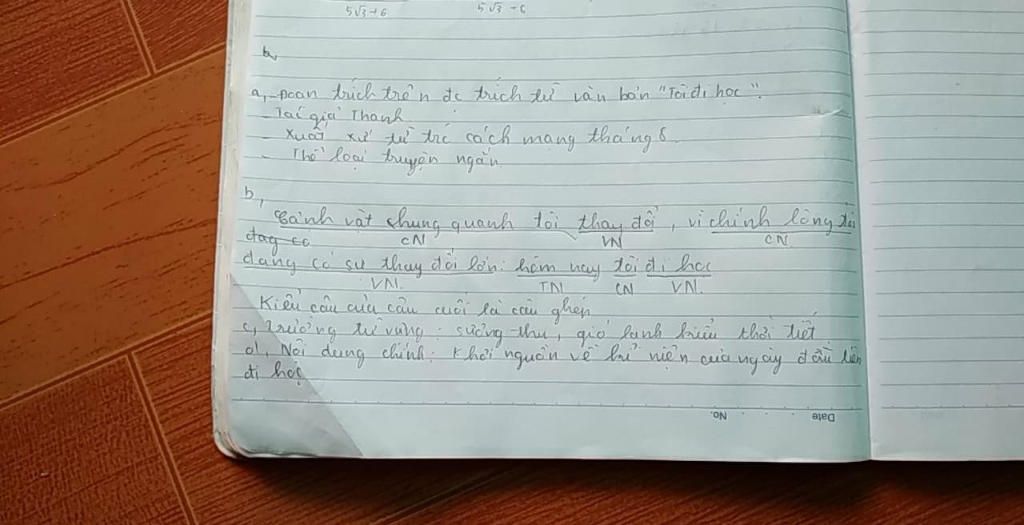 5√3+6 5√3-6
b,
a, -Đoạn trích trên đc trích từ văn bản "Tôi đi học".
- Tác giả Thanh
- Xuất xứ từ trc cách mạng tháng 8.
- Thể loại truyện ngắn.
b,
Cảnh vật chung quanh tôi thay đổi, vì chính lòng tôi
CN VN CN
đag có
đang có sự thay đổi lớn: hôm nay tôi đi học
VN. TN CN VN.
Kiểu câu của câu cuối là câu ghép
c, Trường từ vựng: sương thu, gió lạnh biểu thời tiết
d, Nôi dung chính: Khơi nguồn về kỉ niện của ngày đầu tiên
đi học
Date No.